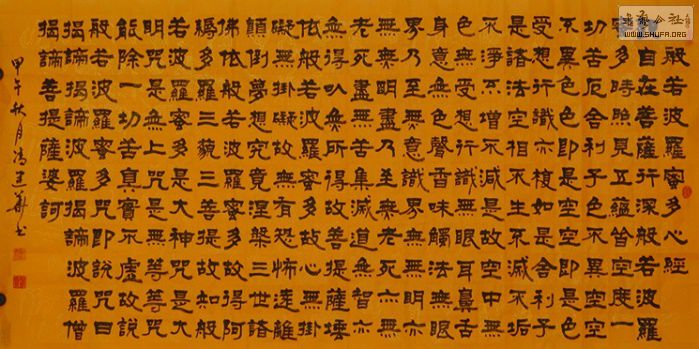 般若波羅蜜多心經
自在菩薩行深般若波羅
多時照見五蘊皆空度一
切苦厄舍利子色不異空空
不異色色即是空空即是色
受想行識亦復如是舍利子
是諸法空相不生不滅不垢
不淨不增不減是故空中無
色無受想行識無眼耳鼻舌
身意無色聲香味觸法無眼
界乃至無意識界無無明亦
無無明盡乃至無老死亦無
老死盡無苦集滅道無智亦
無得以無所得故菩提薩埵
依般若波羅蜜多故心無掛
礙無掛礙故無有恐怖遠離
顛倒夢想究竟涅槃三世諸
佛依般若波羅蜜多故得阿
耨多羅三藐三菩提故知般
若波羅蜜多是大神咒是大
明咒是無上咒是無等等咒
能除一切苦真實不虛故說
般若波羅蜜多咒即說咒曰
揭諦揭諦波羅揭諦波羅僧
揭諦菩提薩婆訶
甲午秋月馮建華書
WWW.SHUFA.ORG